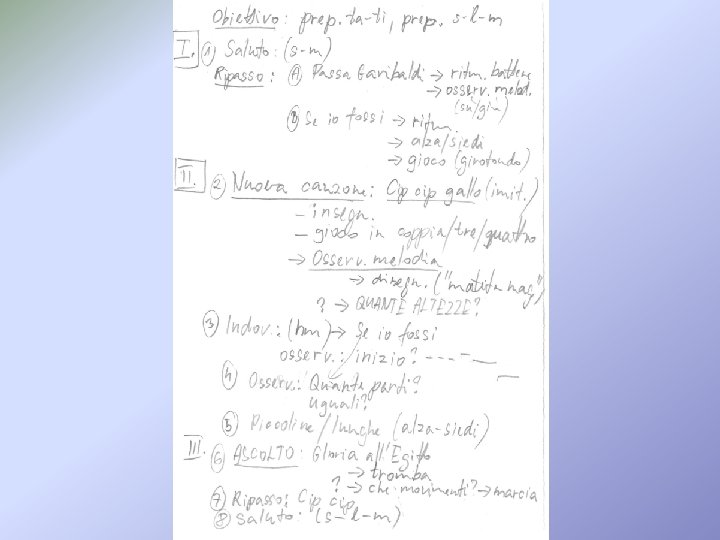 Obiettivo: prep. ta-ti, prep. s-l-m
I. ① Saluto: (s-m)
Ripasso: Ⓐ Passa Garibaldi → ritm. battere
→ osserv. melod.
(su/giù)
Ⓑ Se io fossi → ritm.
→ alza/siedi
→ gioco (girotondo)
II. ② Nuova canzone: Cip cip gallo (imit.)
- insegn.
- gioco in coppia/tre/quattro
→ Osserv. melodia
→ disegn. ("matita mag")
? → QUANTE ALTEZZE?
③ Indov.: (hm) → Se io fossi
osserv.: inizio?
④ Osserv.: Quante parti?
uguali?
⑤ Piccoline/lunghe (alza-siedi)
III. ⑥ ASCOLTO: Gloria all'Egitto
→ tromba
? → che movimenti? → marcia
⑦ Ripasso: Cip cip
⑧ Saluto: (s-l-m)